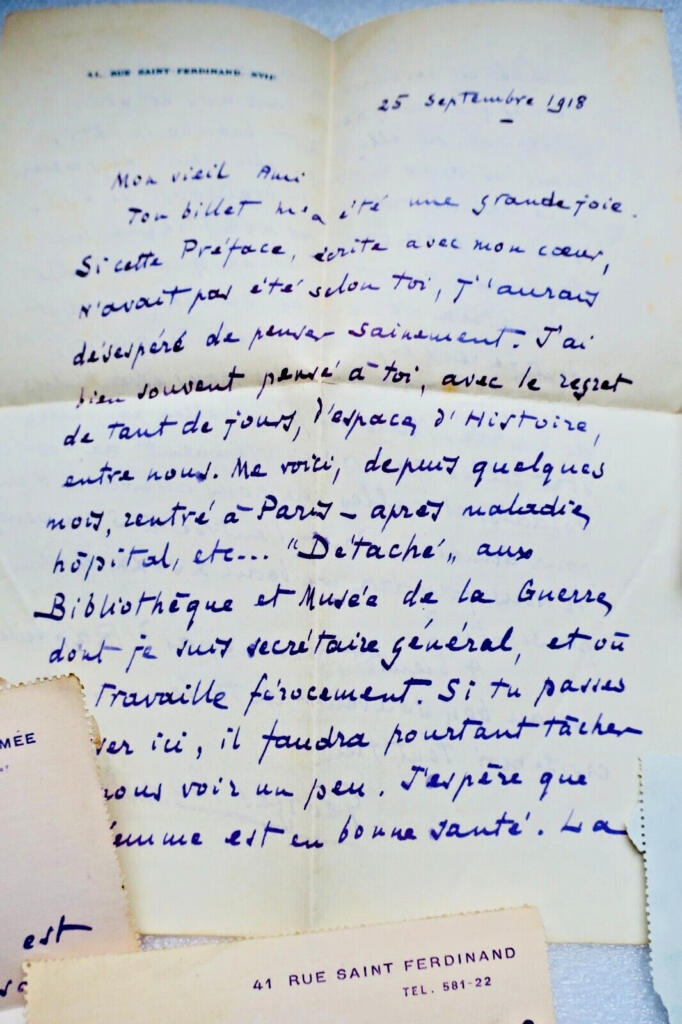 41, RUE SAINT-FERDINAND. XVIIe
25 septembre 1918
Mon vieil Ami
Ton billet m'a été une grande joie.
Si cette Préface, écrite avec mon cœur,
n'avait pas été selon toi, j'aurais
désespéré de penser sainement. J'ai
bien souvent pensé à toi, avec le regret
de tant de jours, d'espace, d'Histoire,
entre nous. Me voici, depuis quelques
mois, rentré à Paris – après maladie,
hôpital, etc... "Détaché" aux
Bibliothèque et Musée de la Guerre,
dont je suis secrétaire général, et où
travaille férocement. Si tu passes
ver ici, il faudra pourtant tâcher
nous voir un peu. J'espère que
femme est en bonne santé. La
MÉE
est
41 RUE SAINT FERDINAND
TEL. 581-22